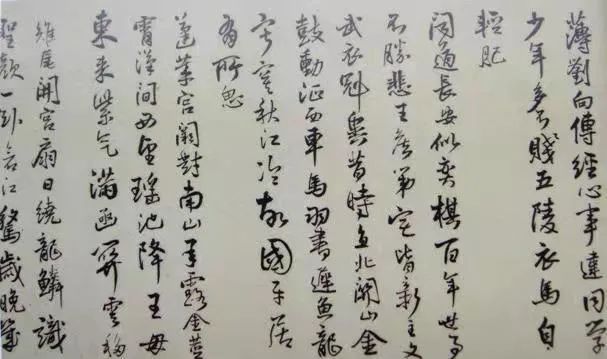 薄劉向傳經心事違同學
少年多不賤五陵衣馬自
輕肥
聞道長安似奕棋百年世事
不勝悲王侯第宅皆新主文
武衣冠異昔時直北關山金
鼓動征西車馬羽書遲魚龍
寂寞秋江冷故國平居
有所思
蓬萊宮闕對南山承露金莖
霄漢間西望瑤池降王母
東來紫气滿函關雲移
雉尾開宮扇日繞龍鱗識
聖顏一卧滄江驚歲晚幾